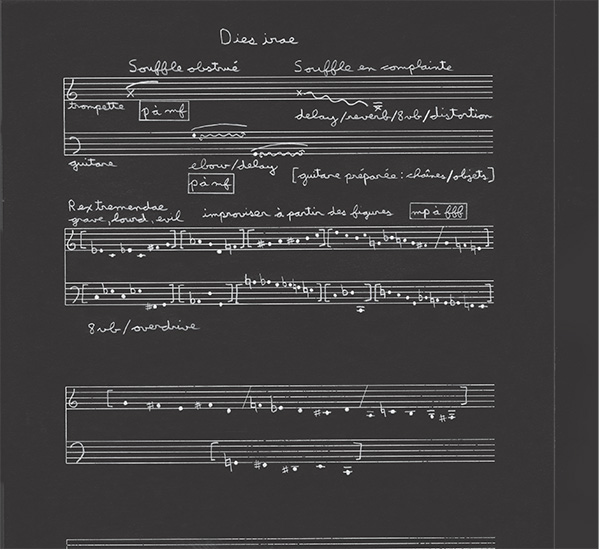 Dies irae
Souffle obstrué
Souffle en complainte
trompette
p à mf
delay/reverb/8vb/distortion
guitare
ebow/delay
p à mf
[guitare préparée: chaînes/objets]
Rex tremendae
grave, lourd, evil
improviser à partir des figures
mp à fff
8vb/overdrive